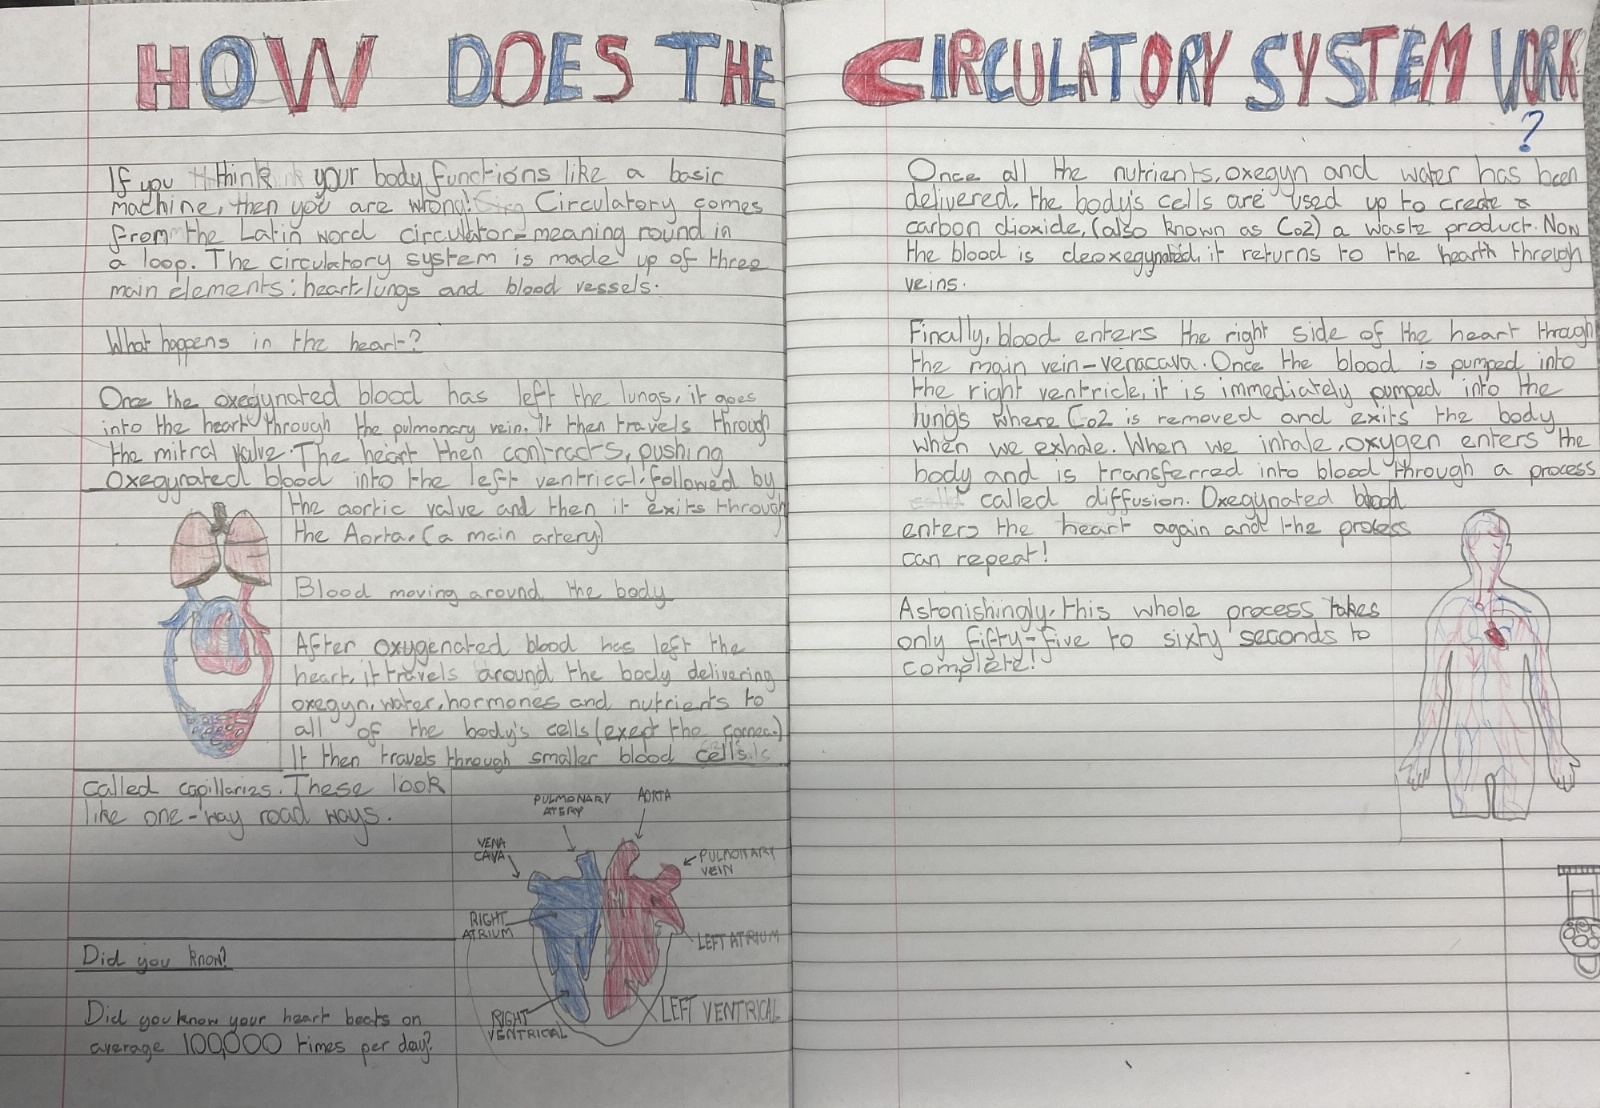 HOW DOES THE CIRCULATORY SYSTEM WORK
?
If you think your body functions like a basic
machine, then you are wrong! Circulatory comes
from the Latin word circulator-meaning round in
a loop. The circulatory system is made up of three
main elements: heart, lungs and blood vessels.
What happens in the heart?
Once the oxegynated blood has left the lungs, it goes
into the heart through the pulmonary vein. It then travels through
the mitral valve. The heart then contracts, pushing
oxegynated blood into the left ventrical; followed by
the aortic valve and then it exits through
the Aorta, (a main artery)
Blood moving around the body
After oxygenated blood has left the
heart, it travels around the body delivering
oxegyn, water, hormones and nutrients to
all of the body's cells (exept the cornea.)
It then travels through smaller blood cells
called capillaries. These look
like one-way road ways.
PULMONARY
ATERY
AORTA
VENA
CAVA
PULMONARY
VEIN
RIGHT
ATRIUM
LEFT ATRIUM
RIGHT
VENTRICAL
LEFT VENTRICAL
Did you know?
Did you know your heart beats on
average 100,000 times per day?
Once all the nutrients, oxegyn and water has been
delivered, the body's cells are used up to create a
carbon dioxide, (also known as Co2) a waste product. Now
the blood is deoxegynated, it returns to the hearth through
veins.
Finally, blood enters the right side of the heart through
the main vein-venacava. Once the blood is pumped into
the right ventricle, it is immediately pumped into the
lungs where Co2 is removed and exits the body
when we exhale. When we inhale, oxygen enters the
body and is transferred into blood through a process
called diffusion. Oxegynated blood
enters the heart again and the process
can repeat!
Astonishingly, this whole process takes
only fifty-five to sixty seconds to
complete!